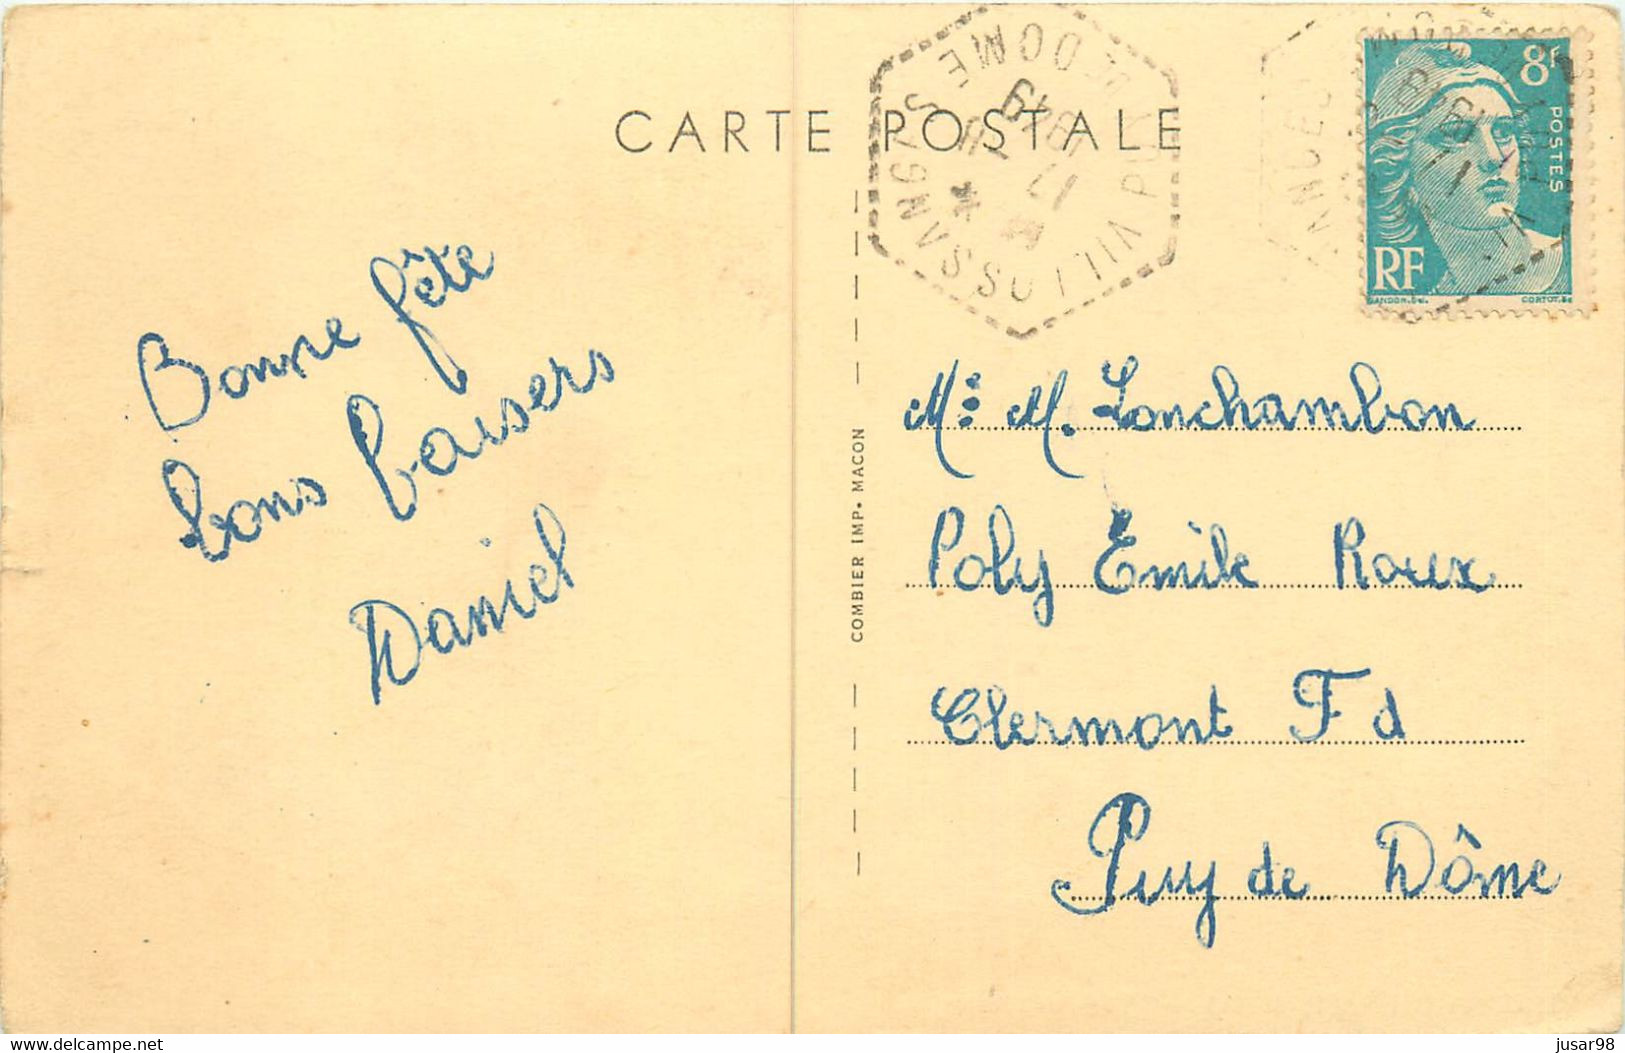 CARTE POSTALE
8F
POSTES
RF
GANDON.Del.
CORTOT.Sc
1949
PUY DE DOME
Bonne fête
bons baisers
Daniel
COMBIER IMP. MACON
Mr: M. Lonchambon
Poly Emile Roux
Clermont Fd
Puy de Dôme
delcampe.net
jusar98